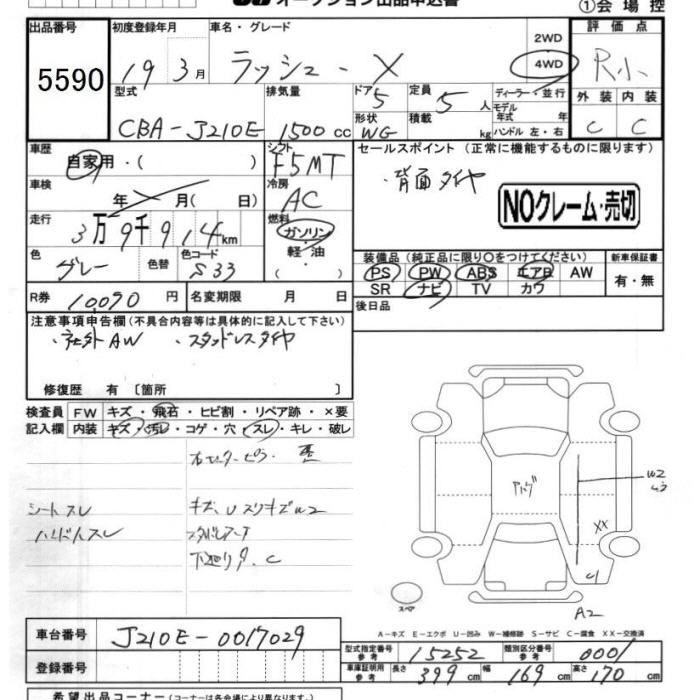 オークション出品申込書
①会場控
出品番号 初度登録年月 車名・グレード 2WD 評価点
5590 19 3月 ラッシュ - X 4WD R小
型式 排気量 ドア 5 定員 5人 ディーラー・並行 外装 内装
モデル年式 年
CBA-J210E 1500cc 形状 WG 積載 kg ハンドル 左・右 C C
車歴 シフト セールスポイント (正常に機能するものに限ります)
自家用・( ) F5MT ・背面タイヤ
車検 冷房
年 月( 日) AC NOクレーム・売切
走行 燃料
3万9千914km ガソリン
色 色替 色コード 軽・油 装備品 (純正品に限り○をつけてください) 新車保証書
グレー S33 ( ) PS PW ABS エアB AW 有・無
R券 10090円 名変期限 月 日 SR ナビ TV カワ
後日品
注意事項申告欄 (不具合内容等は具体的に記入して下さい)
・社外AW ・スタッドレスタイヤ
修復歴 有 〔箇所 〕
検査員 FW キズ・飛石・ヒビ割・リペア跡・×要
記入欄 内装 キズ・汚レ・コゲ・穴・スレ・キレ・破レ
シートスレ キズ、UスリキズW2
ハンドルスレ
下廻りサ.C
W2
XX
スペア
A2
A-キズ E-エクボ U-凹み W-補修跡 S-サビ C-腐食 XX-交換済
車台番号 J210E-0017029 型式指定番号 参考 15252 類別区分番号 参考 0001
登録番号 車庫証明用 参考 長さ 399cm 幅 169cm 高さ 170cm
希望出品コーナー (コーナーは各会場により異なります)